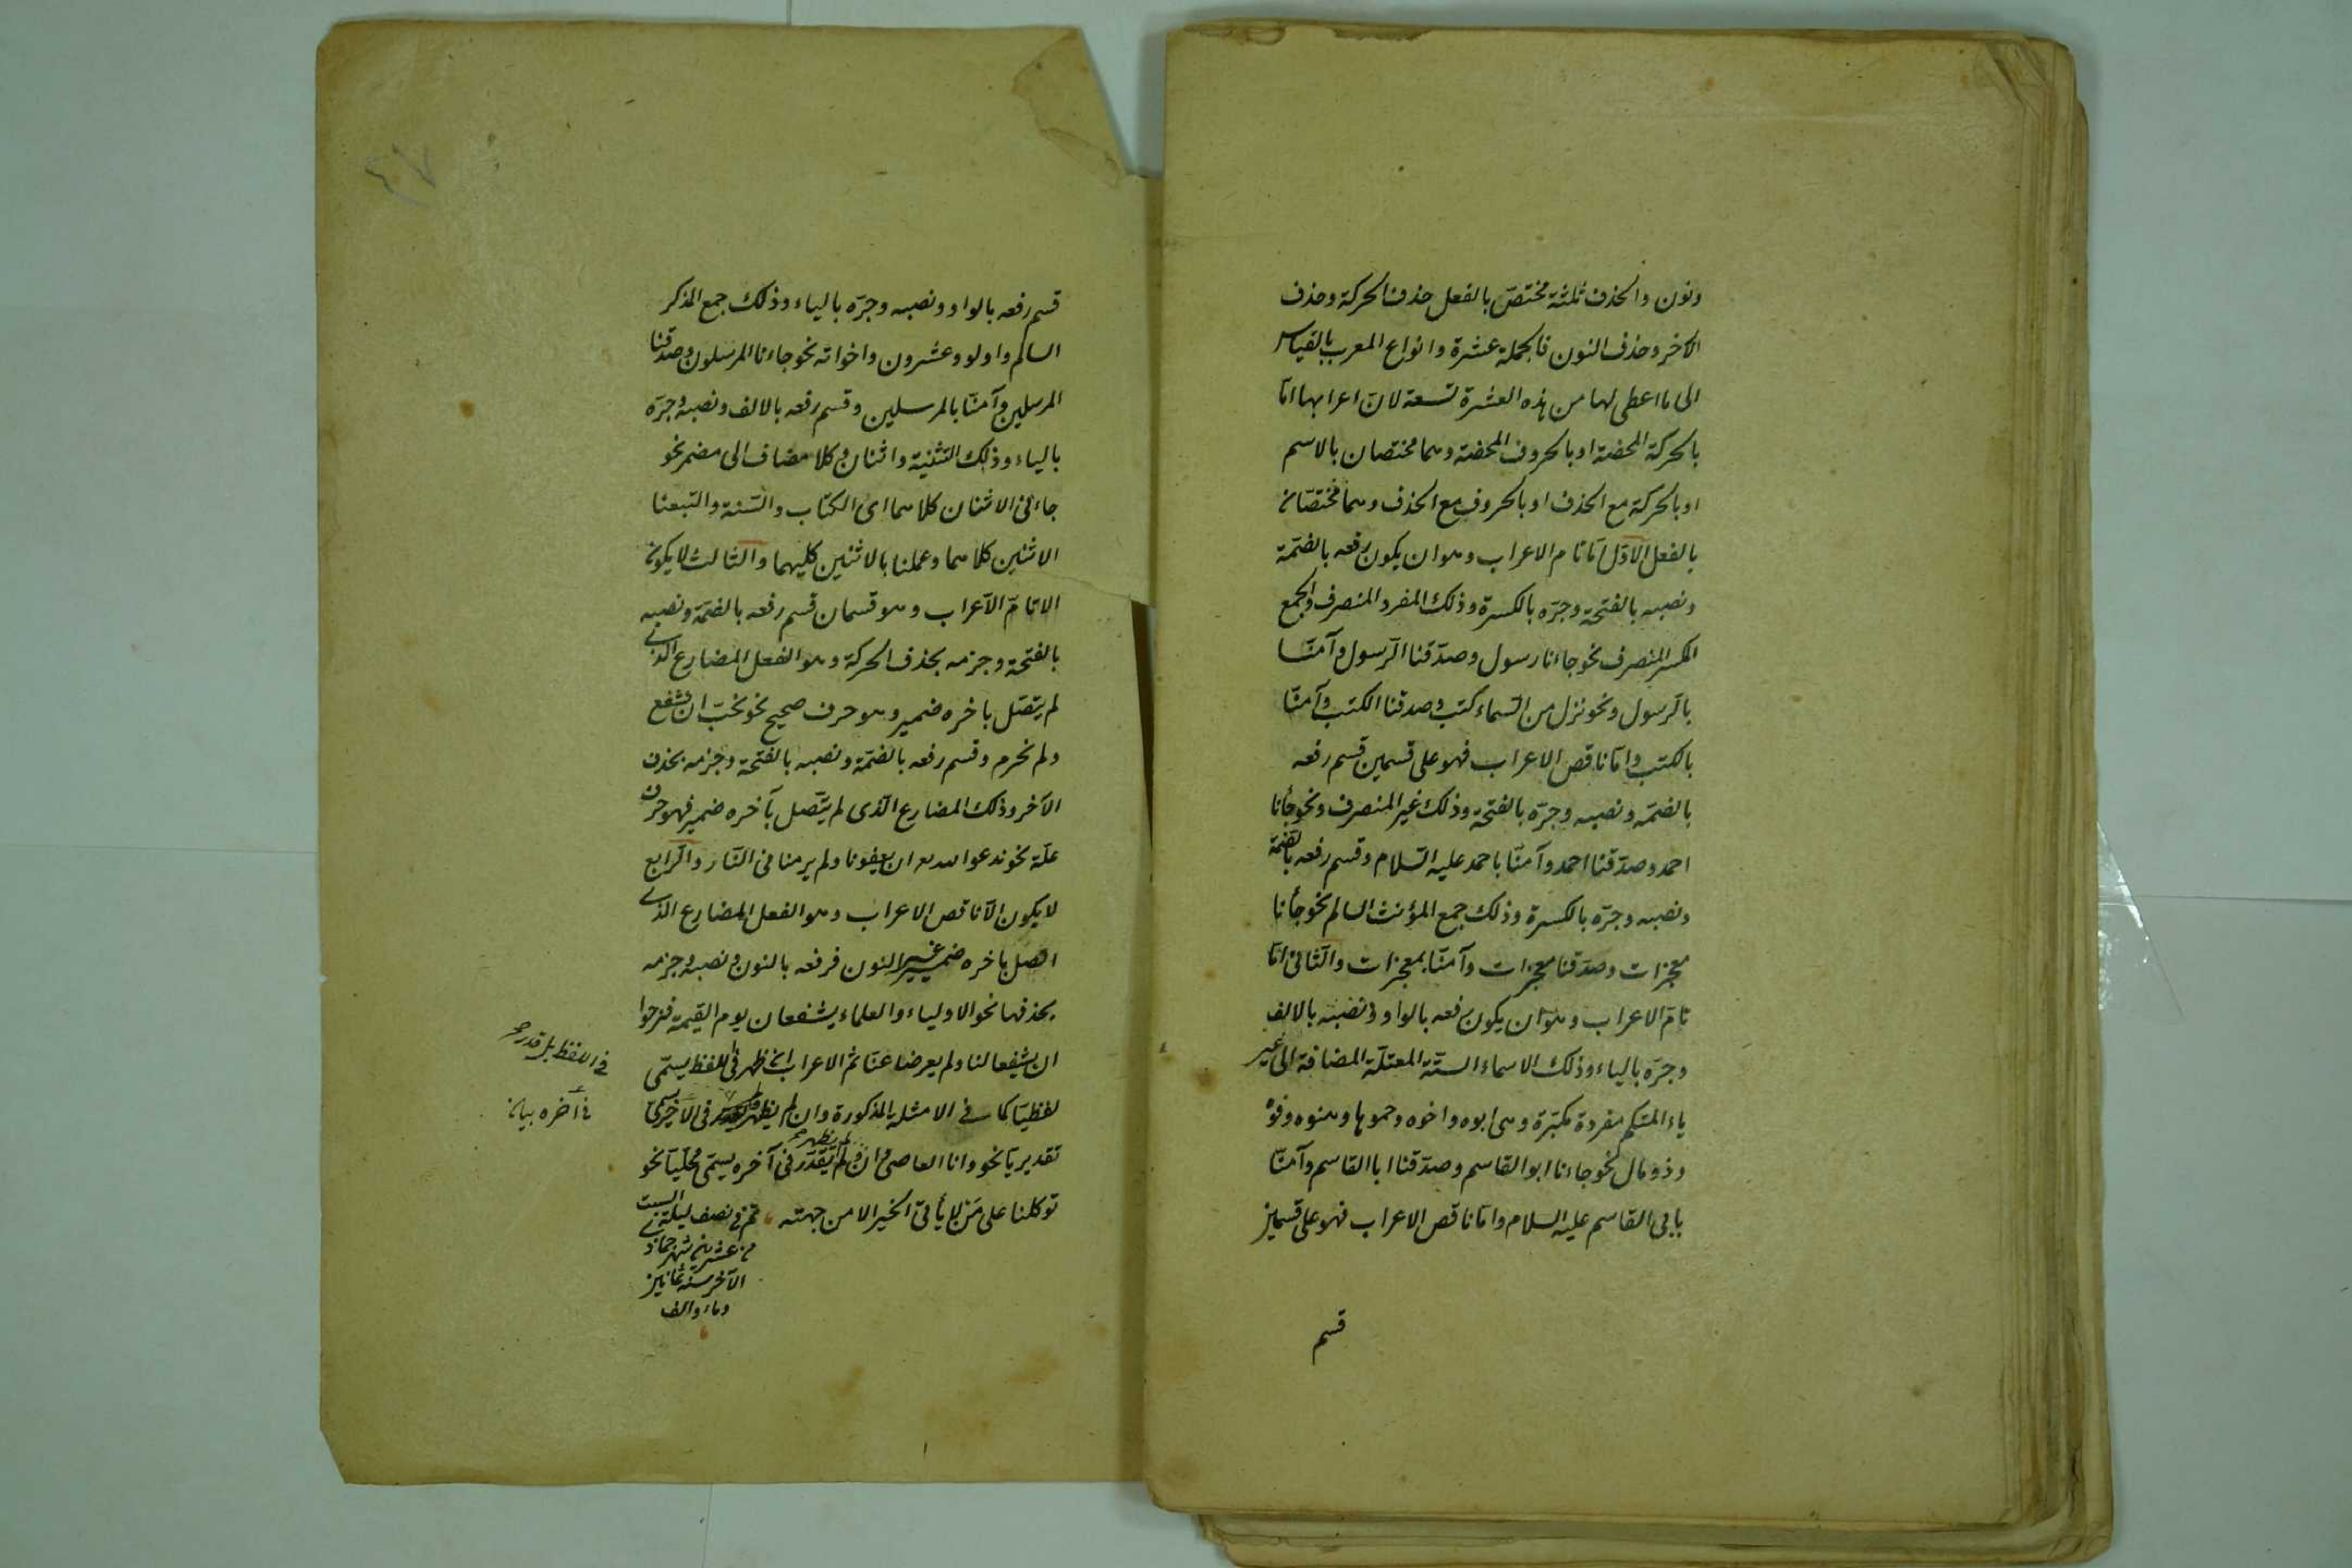 ونون والحذف ثلثة مختص بالفعل حذف الحركة وحذف
الاخر وحذف النون فالجملة عشرة وانواع المعرب بالقياس
الى ما اعطى لها من هذه العشرة تسعة لان اعرابها اما
بالحركة المحضة او بالحروف المحضة وهما مختصان بالاسم
او بالحركة مع الحذف او بالحروف مع الحذف وهما مختصان
بالفعل الاول اما تام الاعراب وهو ان يكون رفعه بالضمة
ونصبه بالفتحة وجره بالكسرة وذلك المفرد المنصرف والجمع
المكسر المنصرف نحو جاءنا رسول وصدقنا الرسول وآمنا
بالرسول ونحو نزل من السماء كتب وصدقنا الكتب وآمنا
بالكتب واما ناقص الاعراب فهو على قسمين قسم رفعه
بالضمه ونصبه وجره بالفتحة وذلك غير المنصرف ونحو جأنا
احمد وصدقنا احمد وآمنا باحمد عليه السلام وقسم رفعه بالضمة
ونصبه وجره بالكسرة وذلك جمع المؤنث السالم نحو جأنا
معجزات وصدقنا معجزات وآمنا بمعجزات والثانى اما
تام الاعراب وهو ان يكون رفعه بالواو ونصبه بالالف
وجره بالياء وذلك الاسماء الستة المعتلة المضافة الى غير
ياء المتكلم مفردة مكبرة وهى ابوه واخوه وحموها وهنوه وفوه
وذو مال نحو جاءنا ابو القاسم وصدقنا ابا القاسم وآمنا
بابى القاسم عليه السلام واما ناقص الاعراب فهو على قسمين
قسم
٤٧
قسم رفعه بالواو ونصبه وجره بالياء وذلك جمع المذكر
السالم واولو وعشرون واخواته نحو جاءنا المرسلون وصدقنا
المرسلين وآمنا بالمرسلين وقسم رفعه بالالف ونصبه وجره
بالياء وذلك التثنية واثنان وكلا مضاف الى مضمر نحو
جاءنى الاثنان كلاهما اى الكتاب والسنة واتبعنا
الاثنين كلاهما وعملنا بالاثنين كليهما والثالث لا يكون
الا تام الاعراب وهو قسمان قسم رفعه بالضمة ونصبه
بالفتحة وجزمه بحذف الحركة وهو الفعل المضارع الذى
لم يتصل باخره ضمير وهو حرف صحيح نحو نحب ان نشفع
ولم نحرم وقسم رفعه بالضمة ونصبه بالفتحة وجزمه بحذف
الآخر وذلك المضارع الذى لم يتصل بآخره ضمير فهو حرف
علة نحو ندعو الله ان يعفونا ولم يرمنا فى النار والرابع
لا يكون الا ناقص الاعراب وهو الفعل المضارع الذى
اتصل باخره ضمير غير النون فرفعه بالنون ونصبه وجزمه
بحذفها نحو الاولياء والعلماء يشفعان يوم القيمة فنرجوا
ان يشفعا لنا ولم يعرضا عنا ثم الاعراب ان ظهر فى اللفظ يسمى
لفظيا كما فى الامثلة المذكورة وان لم يظهر فى الآخر يسمى
تقديريا نحو وانا العاصى وان لم يظهر ولم يقدر فى آخره يسمى محليا نحو
توكلنا على من لا يأتى الخير الا من جهته تم فى نصف ليلة السبت
من عشرين شهر جماذ
الآخر سنة ثمانين
وماء والف
فى اللفظ بل قدر صح
فى آخره